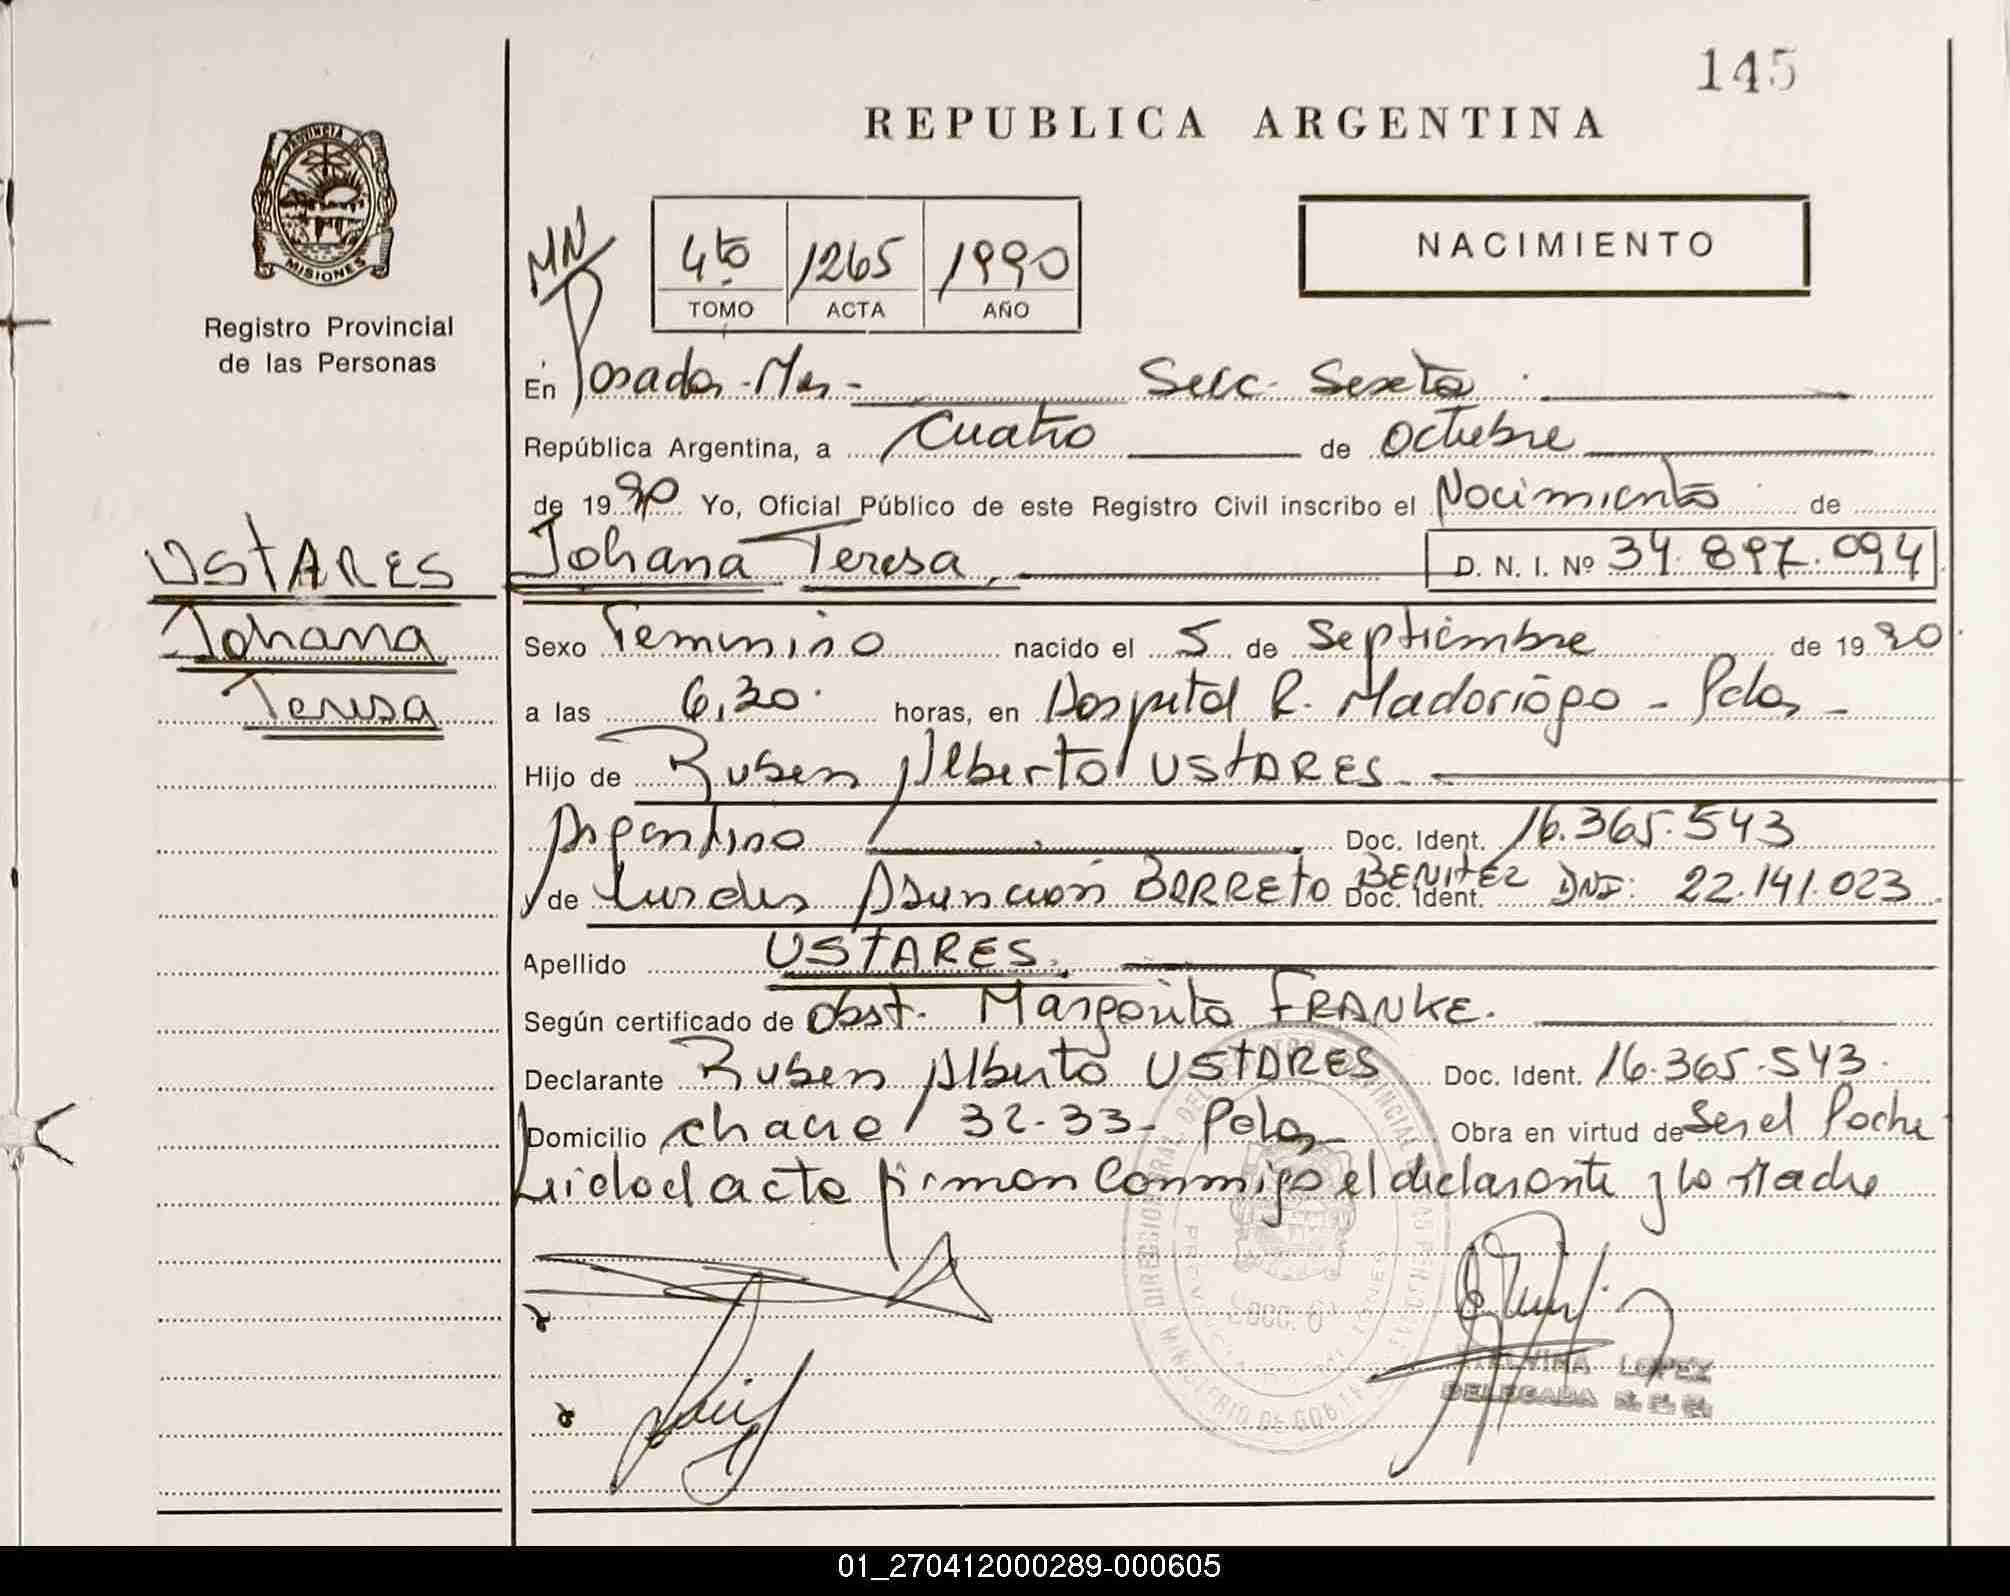 145
REPUBLICA ARGENTINA
PROVINCIA DE MISIONES
Registro Provincial
de las Personas
NACIMIENTO
4to 1265 1990
TOMO ACTA AÑO
En Posadas - Mns - Secc. Sexta
República Argentina, a Cuatro de octubre
de 1990 Yo, Oficial Público de este Registro Civil inscribo el Nacimiento de
Johana Teresa, D. N. I. Nº 34.897.094
USTARES
Johana
Teresa
Sexo Femenino nacido el 5 de Septiembre de 1990
a las 6,30 horas, en Hospital R. Madariaga - Pdas -
Hijo de Ruben Alberto USTARES
Argentino Doc. Ident. 16.365.543
y de Lurdes Asunción BARRETO BENITEZ Doc. Ident. DNI: 22.141.023
Apellido USTARES.
Según certificado de Obst. Margarita FRANKE.
Declarante Ruben Alberto USTARES Doc. Ident. 16.365.543.
Domicilio chacra 32-33- Pdas Obra en virtud de Ser el Padre
Leida el acta firman conmigo el declarante y la Madre
SECC. 6
LOPEZ
DELEGADA
01_270412000289-000605